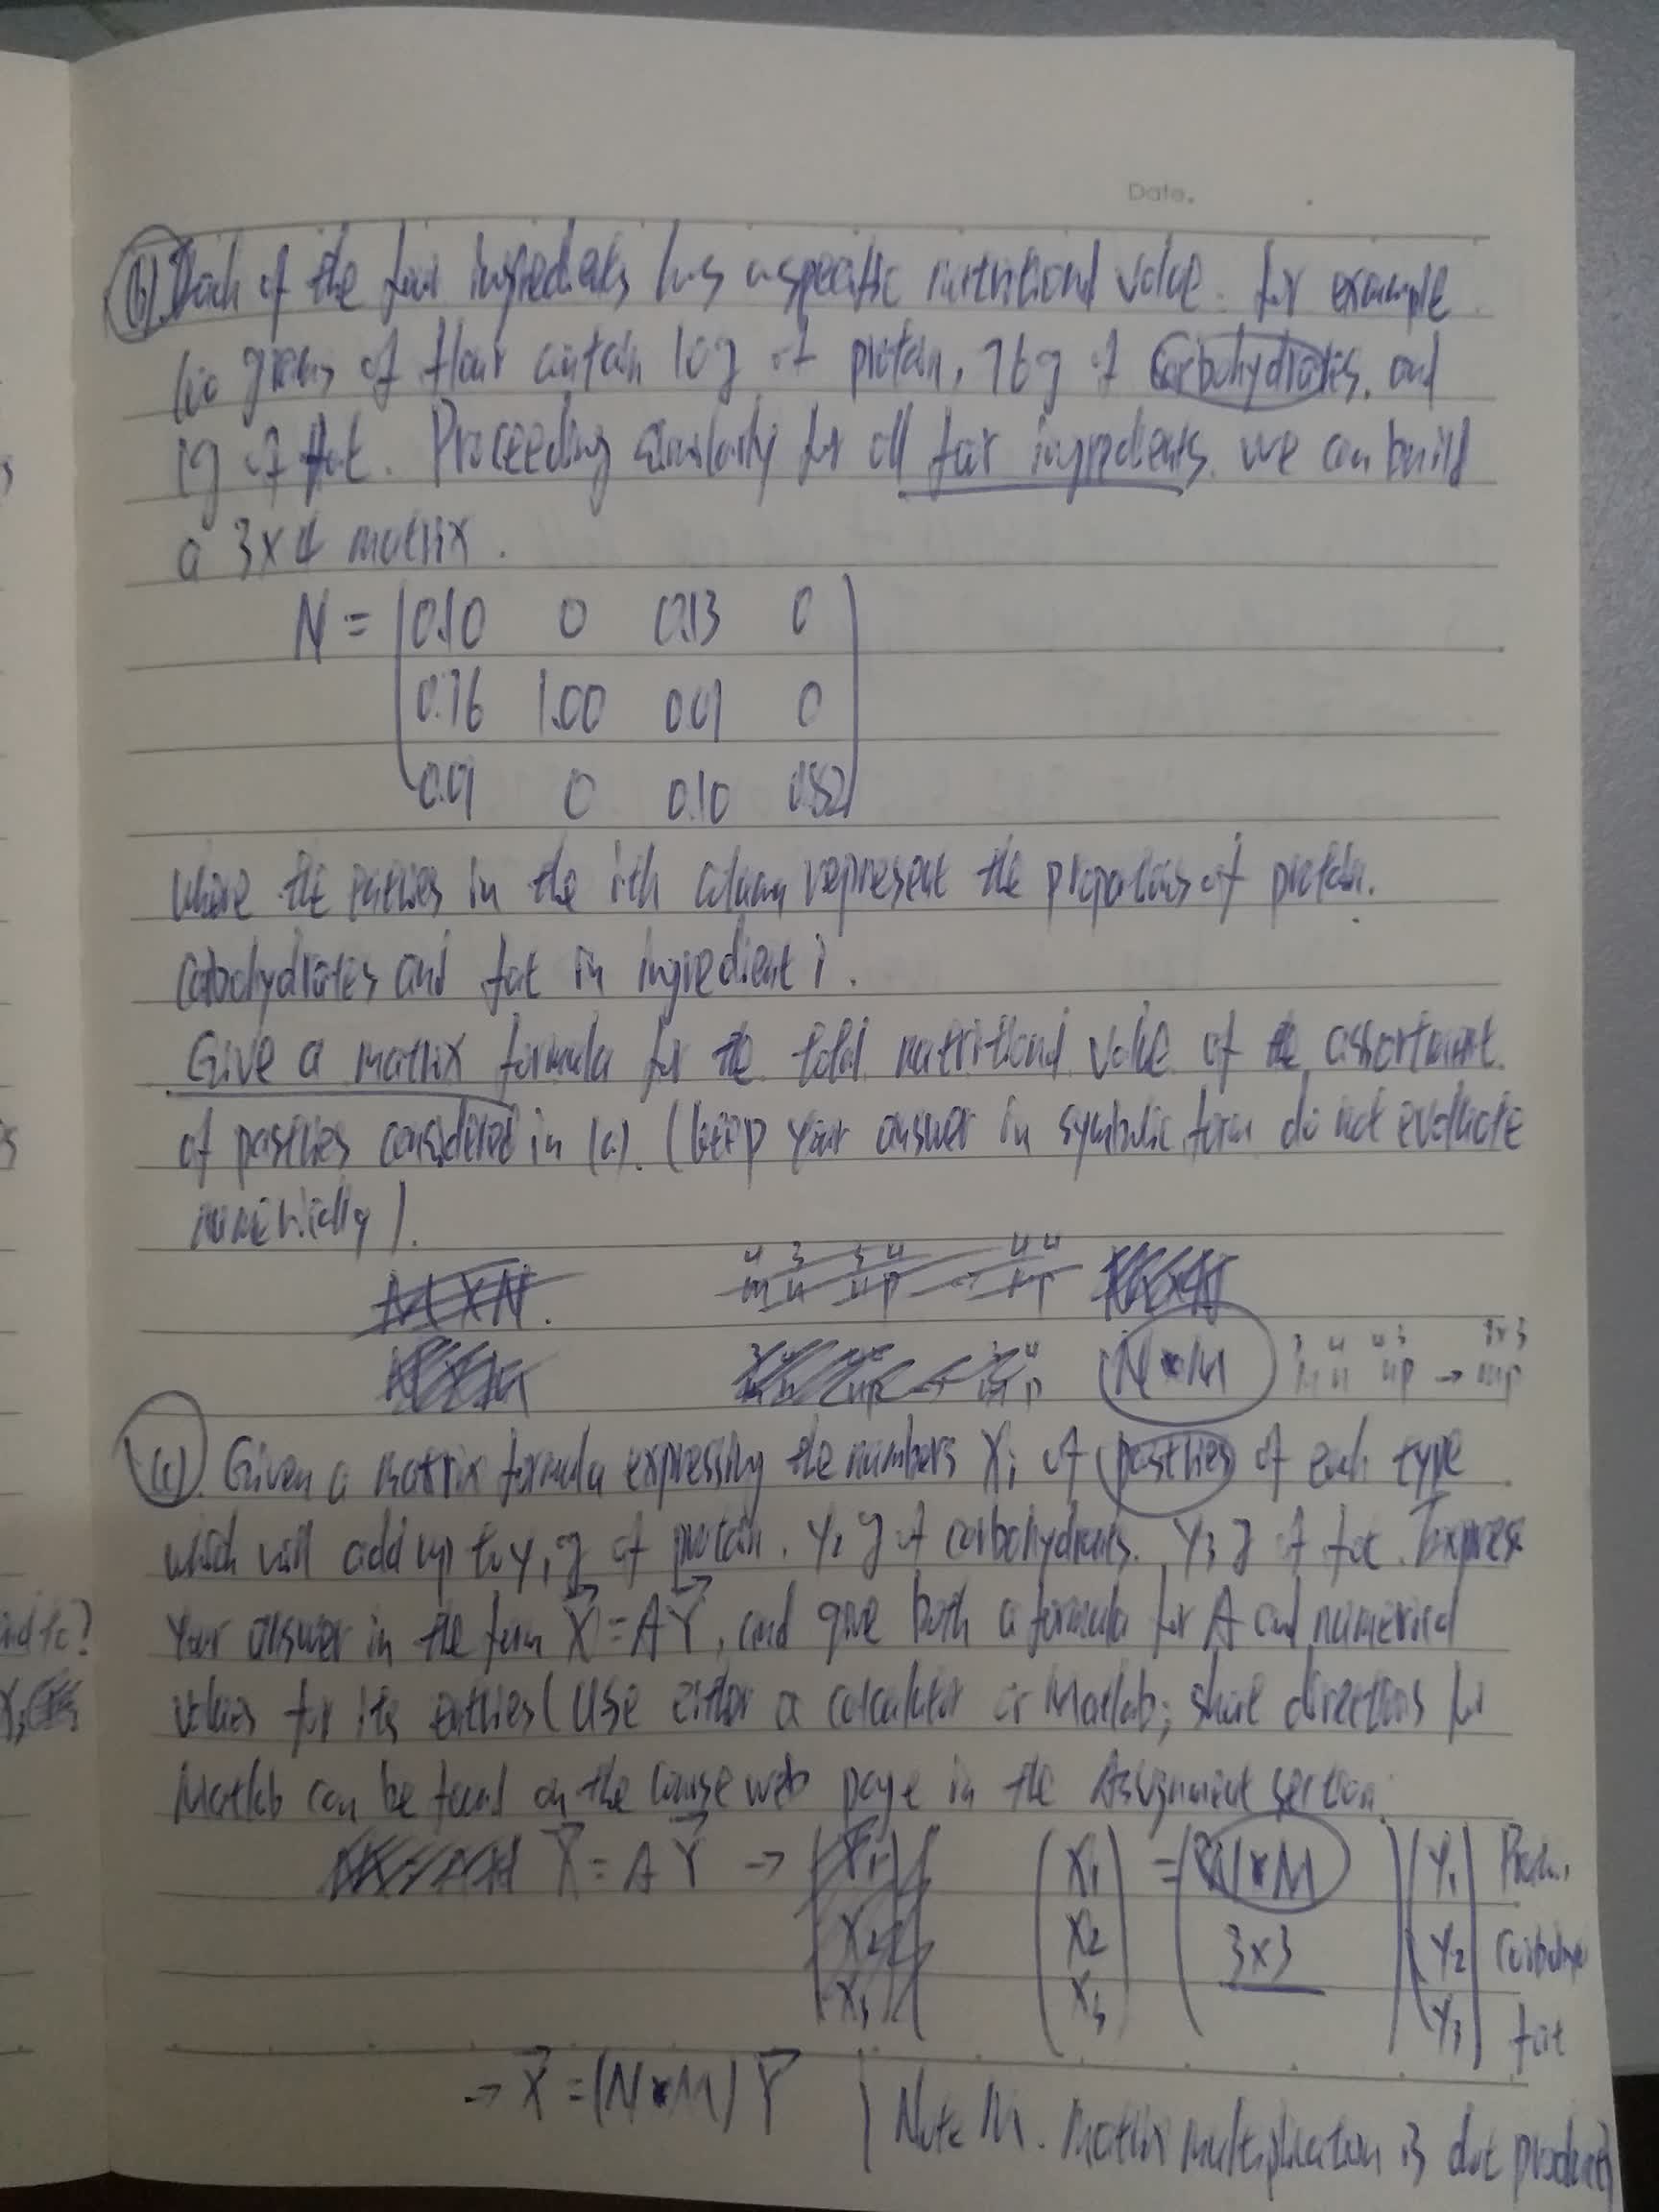 Date.
(b). Each of the four ingredients has a specific nutritional value. for example
100 grams of flour contain 10g of protein, 76g of Carbohydrates, and
1g of fat. Proceeding similarly for all four ingredients, we can build
a 3x4 matrix.
N = 0.10 0 0.13 0
0.76 1.00 0.01 0
0.01 0 0.10 0.82
where the entries in the ith column represent the proportions of protein,
carbohydrates and fat in ingredient i.
Give a matrix formula for the total nutritional value of the assortment
of pastries considered in (a). (keep your answer in symbolic form do not evaluate
numerically).
N • M 3 4 4 3 → 3x3
m n n p → m p
(c). Given a matrix formula expressing the numbers Xi of pastries of each type
which will add up to y1 g of protein, Y2 g of carbohydrates, Y3 g of fat. Express
your answer in the form X = AY, and give both a formula for A and numerical
values for its entries (Use either a calculator or Matlab; short directions for
Matlab can be found on the course web page in the Assignment section.
X = AY → (X1 = (N•M) (Y1
X2 3x3 Y2
X3 Y3 fat
→ X = (N•M) Y | Note M. Matrix multiplication is dot product